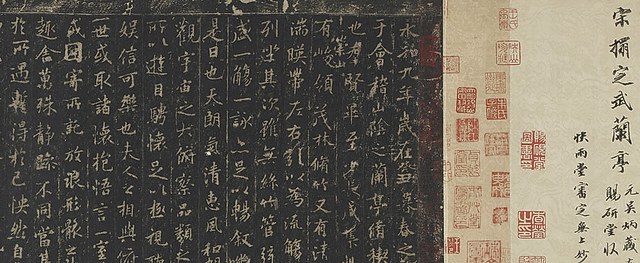 宋搨定武蘭亭
元吳炳藏
賜研堂收
快雨堂審定無上妙
永和九年歲在癸丑暮春之
于會稽山陰之蘭亭脩禊
也羣賢畢至少長咸集
崇山
有峻領茂林脩竹又有清
湍暎帶左右引以為流觴
列坐其次雖無絲竹管
盛一觴一詠亦足以暢敘
是日也天朗氣清惠風和
觀宇宙之大俯察品類之
所以遊目騁懷足以極視聽
娛信可樂也夫人之相與俯
一世或取諸懷抱悟言一室
或因寄所託放浪形骸之
趣舍萬殊靜躁不同當其
於所遇蹔得於己怏然自